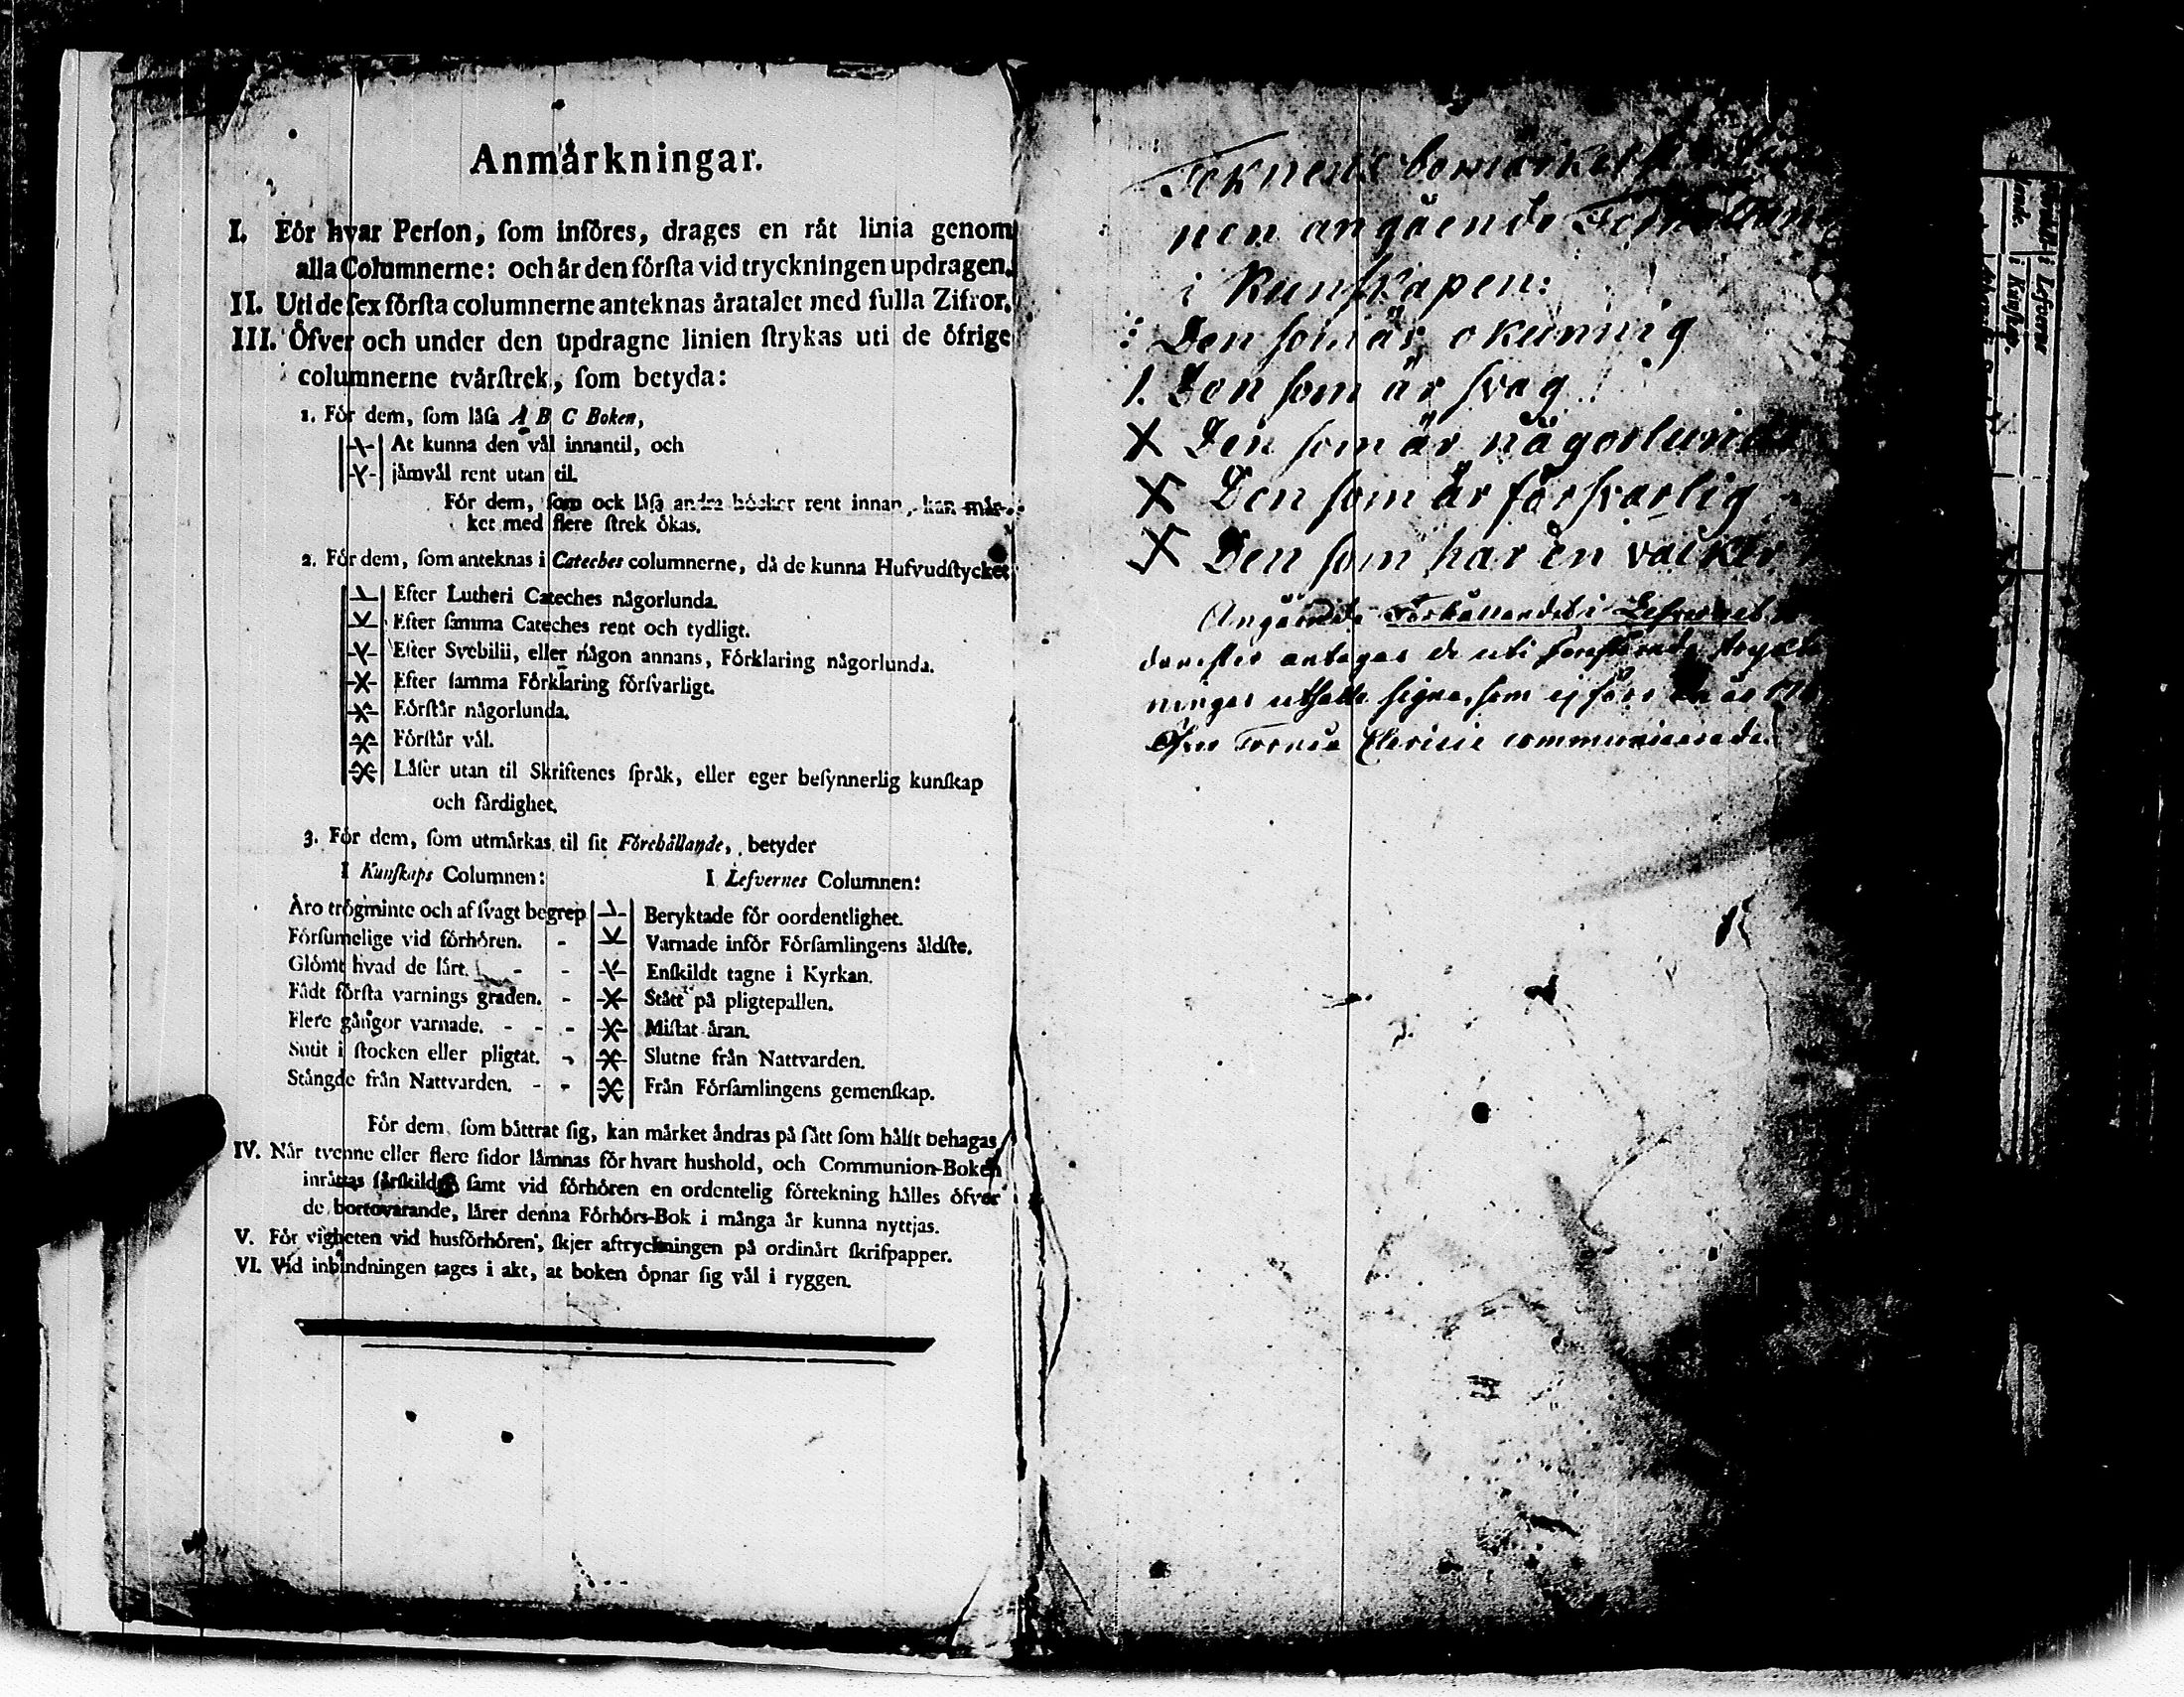 Anmårkningar.
I. För hvar Perſon, ſom införes, drages en råt linia genom
alla Columnerne: och år den förſta vid tryckningen updragen.
II. Uti de ſex förſta columnerne anteknas åratalet med fulla Zifror.
III. Öfver och under den updragne linien ſtrykas uti de öfrige
columnerne tvårſtrek, ſom betyda:
1. För dem, ſom låſa A B C Boken,
At kunna den vål innantil, och
jåmvål rent utan til.
För dem, ſom ock låſa andra böcker rent innan, kan mår-
ket med flere ſtrek ökas.
2. För dem, ſom anteknas i Cateches columnerne, då de kunna Hufvudſtycket
Efter Lutheri Cateches någorlunda.
Efter ſamma Cateches rent och tydligt.
Efter Svebilii, eller någon annans, Förklaring någorlunda.
Efter ſamma Förklaring förſvarligt.
Förſtår någorlunda.
Förſtår vål.
Låſer utan til Skriftenes ſpråk, eller eger beſynnerlig kunſkap
och fårdighet.
3. För dem, ſom utmårkas til ſit Förehållande, betyder
I Kunſkaps Columnen: I Lefvernes Columnen:
Åro trögminte och af ſvagt begrep Beryktade för oordentlighet.
Förſumelige vid förhören. - Varnade inför Förſamlingens åldſte.
Glömt hvad de lårt. - - Enſkildt tagne i Kyrkan.
Fådt förſta varnings graden. - Stått på pligtepallen.
Flere gångor varnade. - - - Miſtat åran.
Sutit i ſtocken eller pligtat. - Slutne från Nattvarden.
Stångde från Nattvarden. - - Från Förſamlingens gemenſkap.
För dem, ſom båttrat ſig, kan mårket åndras på ſått ſom hålſt behagas
IV. Når tvenne eller flere ſidor låmnas för hvart hushold, och Communion-Boken
inråttas ſårſkild, ſamt vid förhören en ordentelig förtekning hålles öfver
de bortovarande, lårer denna Förhörs-Bok i många år kunna nyttjas.
V. För vigheten vid husförhören, ſkjer aftryckningen på ordinårt ſkrifpapper.
VI. Vid inbindningen tages i akt, at boken öpnar ſig vål i ryggen.
Teknens
nen angående
i Kunſkapen:
Den ſom är okunnig
1. Den ſom är ſvag
X Den ſom är någorlunda
X Den ſom är förſvarlig
X Den ſom har en vacker
Angående Förhållandet i Lefvernet
ſom ej före
communicerade.
i Lefverne
i Kunſkap.